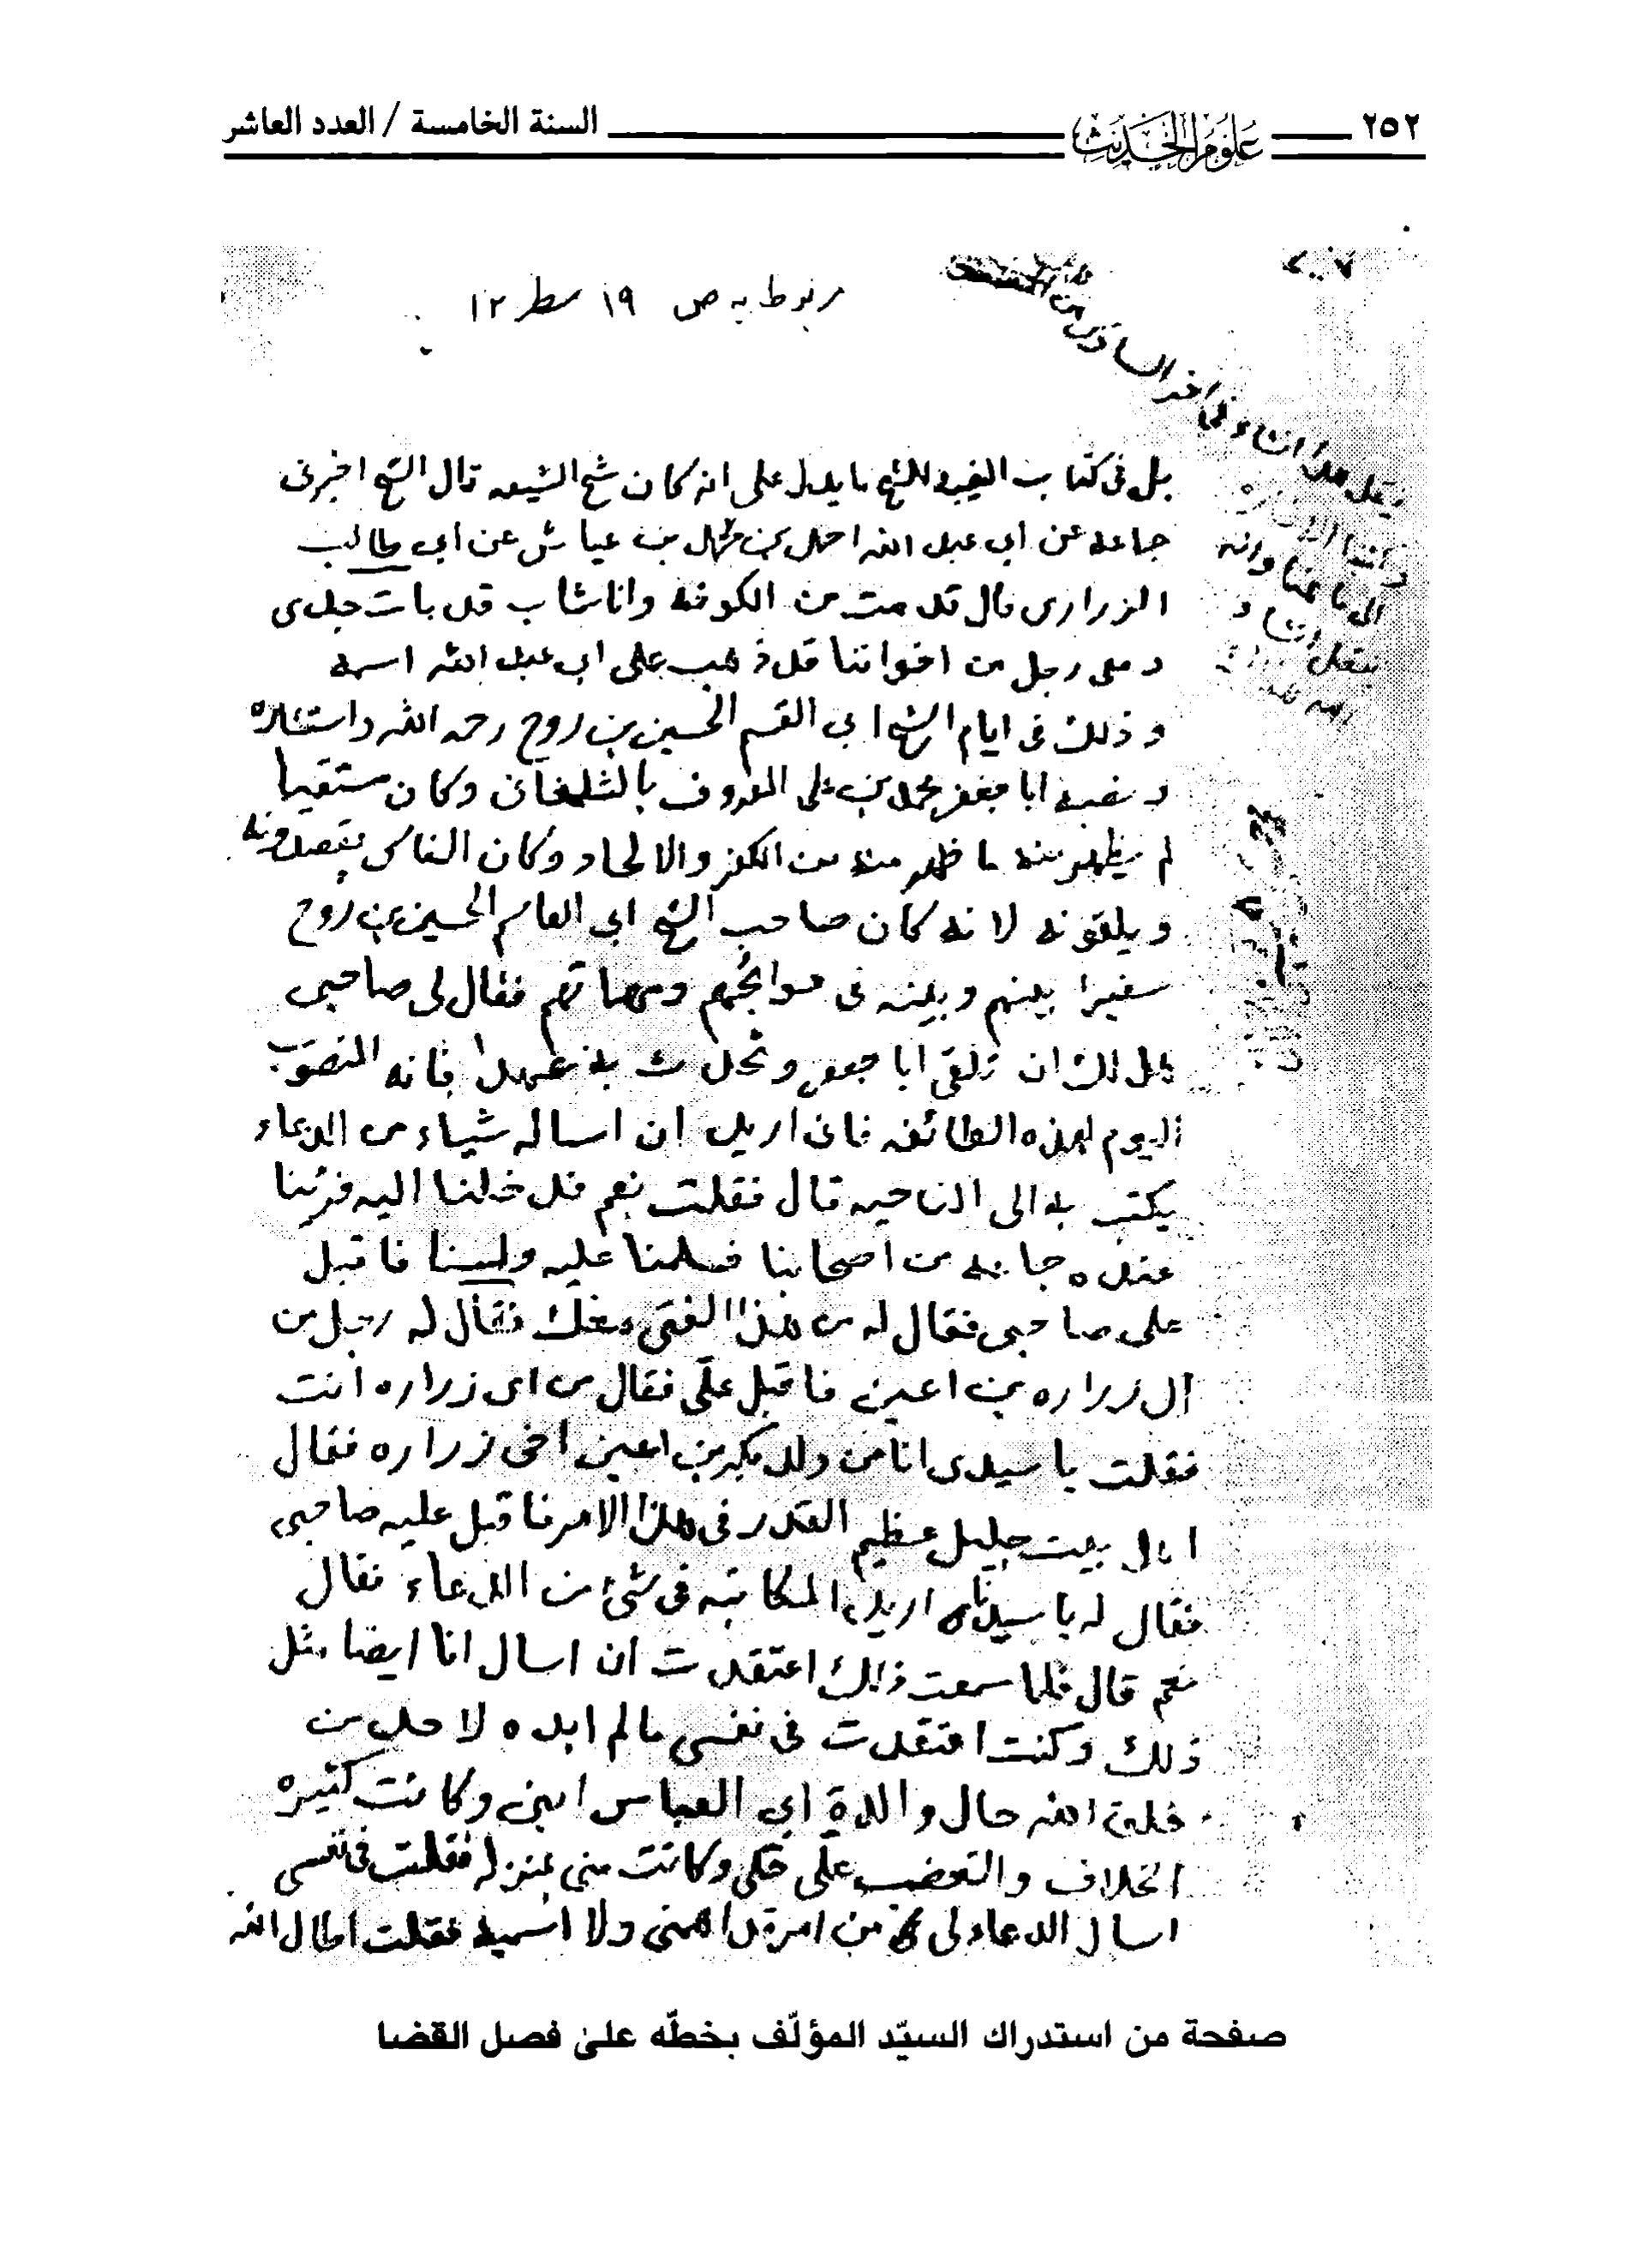 ٢٥٢ علوم الحديث السنة الخامسة / العدد العاشر
مربوط به ص ١٩ سطر ١٢
بل فى كتاب الغيبه للشيخ ما يدل على انه كان شيخ الشيعه قال الشيخ اخبرنى
جماعة عن ابي عبد الله احمد بن محمد بن عياش عن ابي طالب
الزرارى قال قدمت من الكوفة وانا شاب قدمات جدى
ومعى رجل من اخواننا قد ذهب على ابي عبد الله اسمه
و ذلك فى ايام الشيخ ابي القسم الحسين بن روح رحمه الله واستتاره
ونصبه ابا جعفر محمد بن على المعروف بالشلمغانى وكان مستقيما
لم يظهر منه ما ظهر منه من الكفر والالحاد وكان الناس يقصدونه
ويلقونه لانه كان صاحب الشيخ ابي القاسم الحسين بن روح
سفيرا بينهم وبينه فى حوائجهم ومهماتهم فقال لى صاحبى
هل لك ان تلقى ابا جعفر وتحدث به عهدا فانه المنصوب
اليوم لهذه الطائفه فانى اريد ان اساله شياء من الدعاء
يكتب به الى الناحيه قال فقلت نعم فدخلنا اليه فرئينا
عنده جماعه من اصحابنا فسلمنا عليه وجلسنا فاقبل
على صاحبى فقال له من هذا الفتى معك فقال له رجل من
آل زراره بن اعين فاقبل علىّ فقال من اى زراره انت
فقلت يا سيدى انا من ولد بكير بن اعين اخى زراره فقال
اهل بيت جليل عظيم القدر فى هذا الامر فاقبل عليه صاحبى
فقال له يا سيدنا اريد المكاتبه فى شئ من الدعاء فقال
نعم قال فلما سمعت ذلك اعتقدت ان اسال انا ايضا مثل
ذلك وكنت اعتقدت فى نفسى مالم ابده لاحد من
خلق الله حال والدة ابي العباس ابنى وكانت كثيره
الخلاف والغضب علىّ وكانت منى بمنزلة فقلت فى نفسى
اسال الدعاء لى من امر قد اهمنى ولا اسميه فقلت اطال الله
صفحة من استدراك السيّد المؤلّف بخطّه على فصل القضا